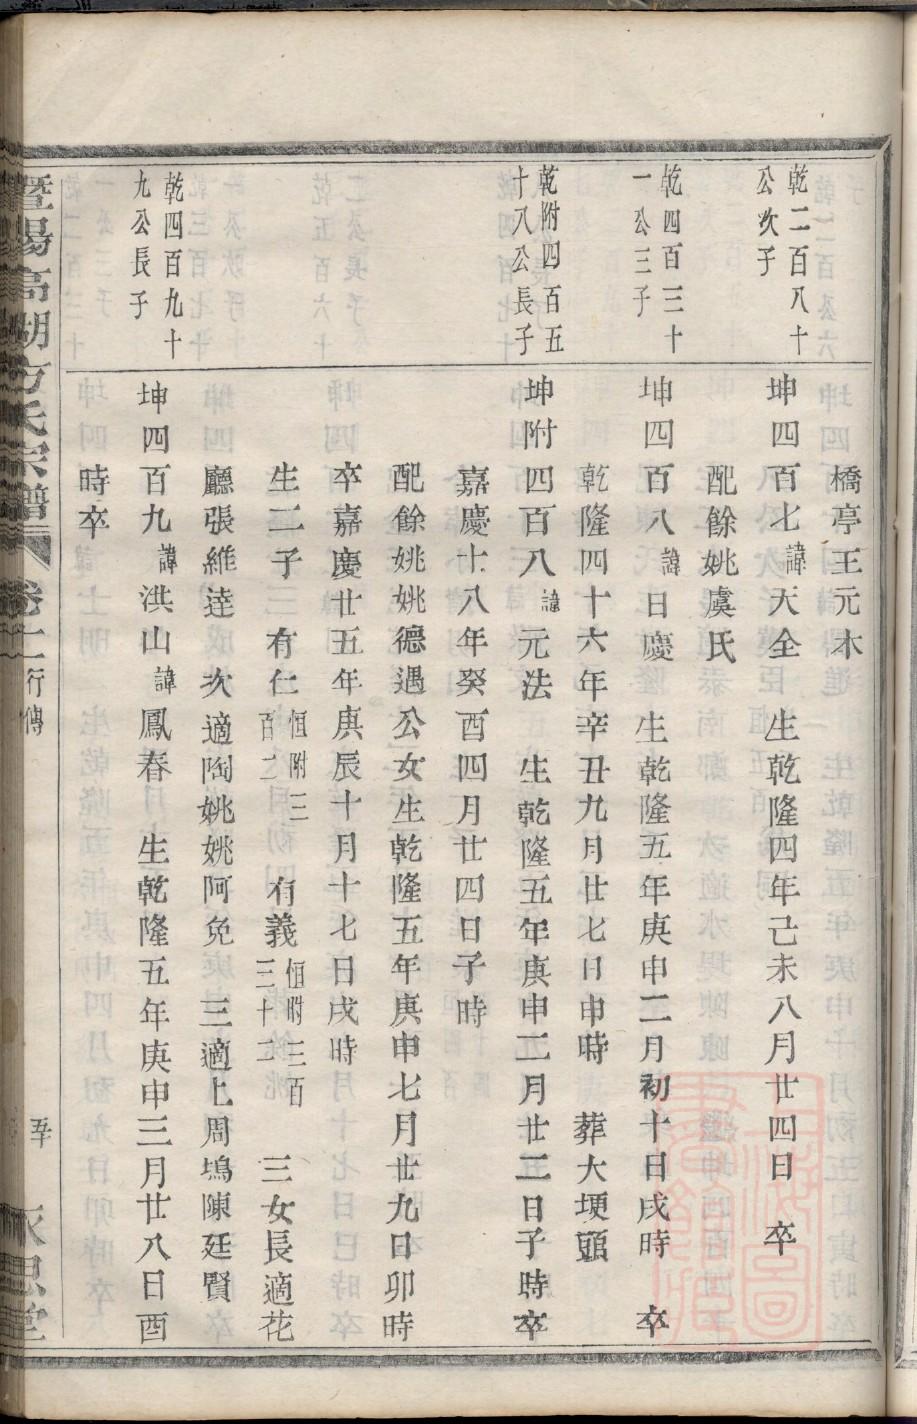 橋亭王元木
乾二百八十
公次子
坤四百七諱天全 生乾隆四年己未八月廿四日 卒
配餘姚虞氏
乾四百三十
一公三子
坤四百八諱日慶 生乾隆五年庚申二月初十日戌時 卒
乾隆四十六年辛丑九月廿七日申時 葬大埂頭
乾附四百五
十八公長子
坤附四百八諱元法 生乾隆五年庚申二月廿二日子時卒
嘉慶十八年癸酉四月廿四日子時
配餘姚姚德遇公女生乾隆五年庚申七月廿九日卯時
卒嘉慶廿五年庚辰十月十七日戌時
生二子 有仁恒附三百二 有義恒附三百三十二 三女長適花
廳張維逵 次適陶姚姚阿免 三適上周塢陳廷賢
乾四百九十
九公長子
坤四百九諱洪山諱鳳春 生乾隆五年庚申三月廿八日酉
時卒
暨陽高湖方氏宗譜 卷十 行傳